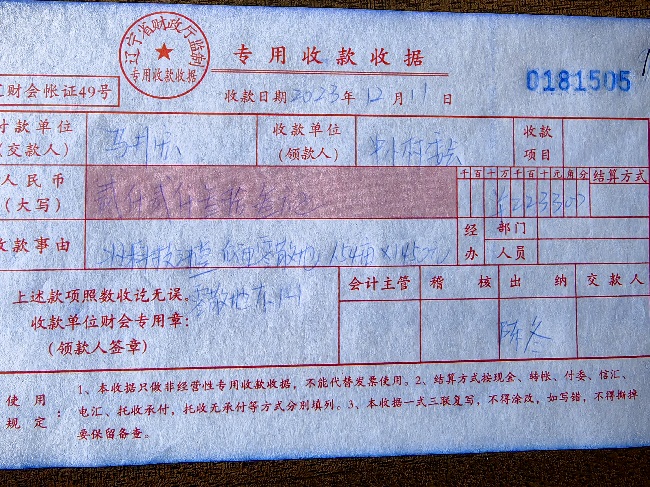 辽宁省财政厅监制
专用收款收据
专用收款收据
0181505
财会帐证49号
收款日期2023年12月11日
付款单位
(交款人)
收款单位
(领款人)
收款
项目
人民币
(大写)
千百十万千百十元角分
结算方式
¥2233.00
收款事由
经办
部门
人员
上述款项照数收讫无误。
收款单位财会专用章:
(领款人签章)
会计主管
稽核
出纳
交款人
陈冬
使用规定:
1、本收据只做非经营性专用收款收据,不能代替发票使用。2、结算方式按现金、转帐、付委、信汇、
电汇、托收承付,托收无承付等方式分别填列。3、本收据一式三联复写,不得涂改,如写错,不得撕掉
要保留备查。